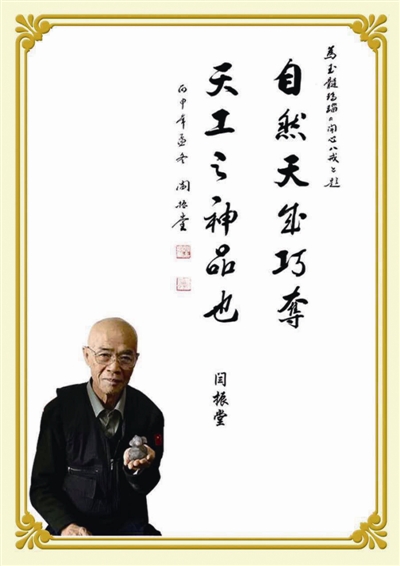 為玉髓瑪瑙《開心八戒》題
自然天成巧奪
天工之神品也
丙申年孟冬 閆振堂
闫振堂